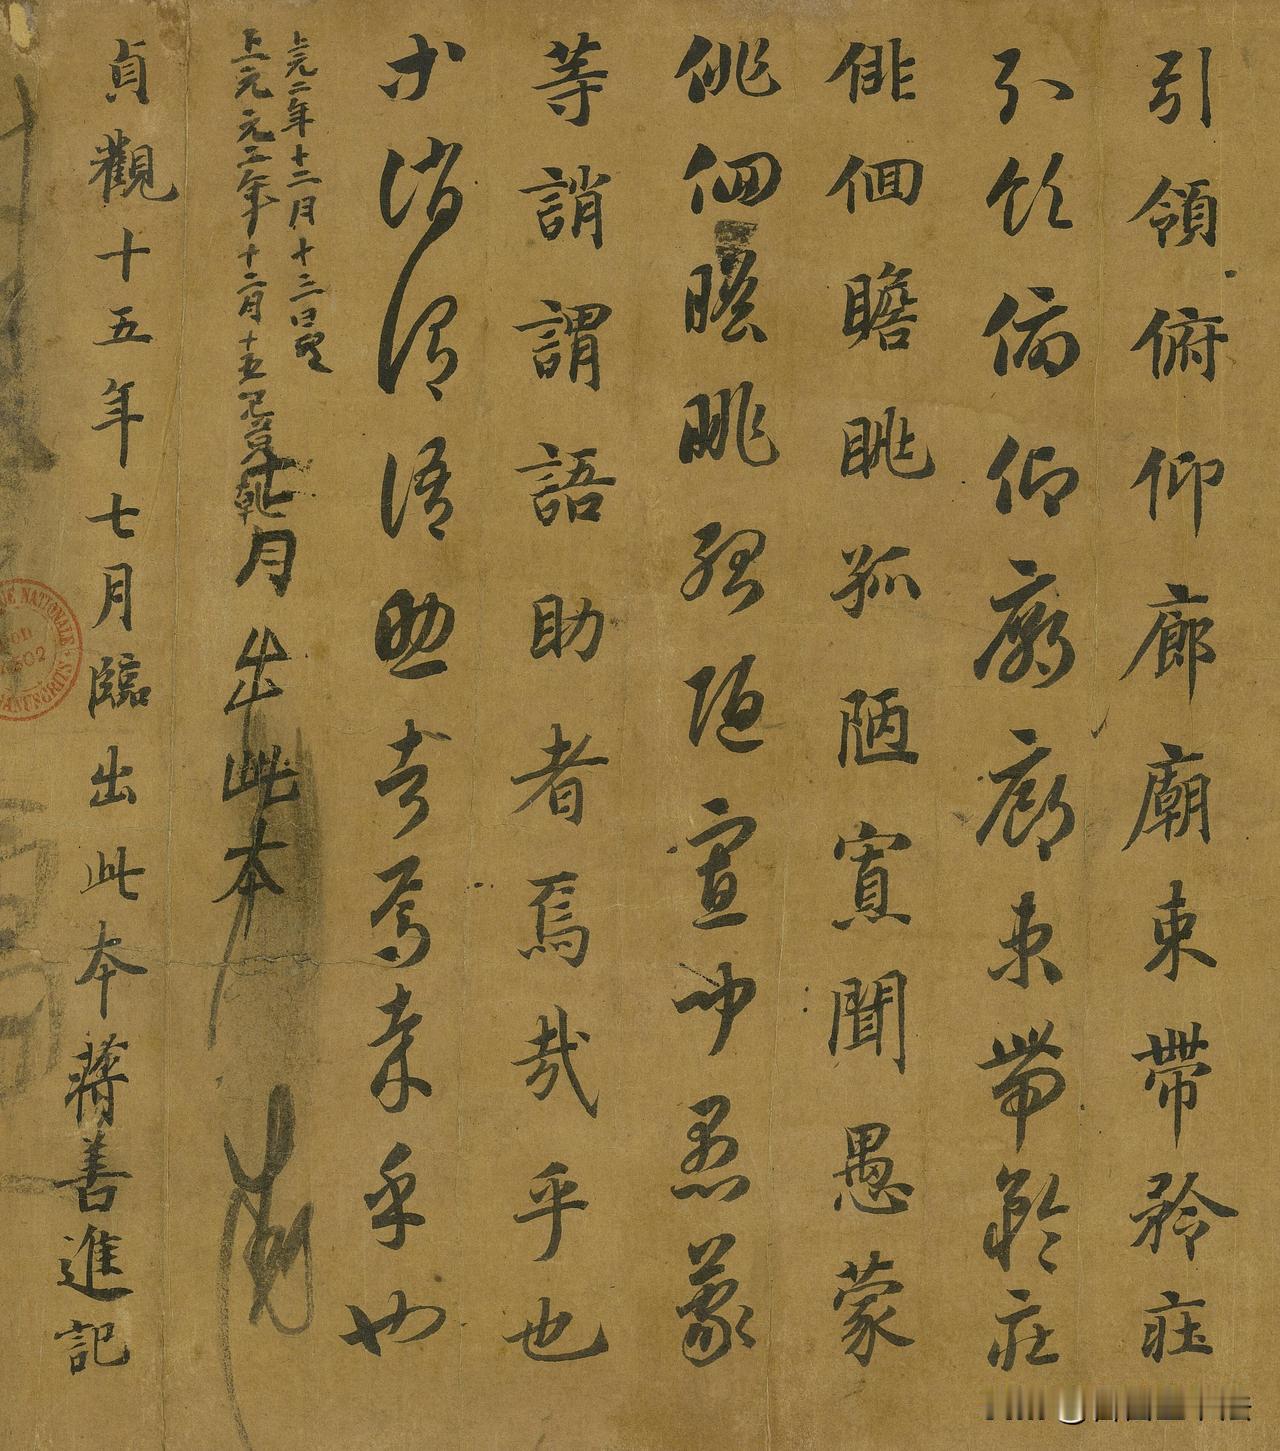 引領俯仰廊廟束帶矜莊
引領俯仰廊廟束帶矜莊
俳佪瞻眺孤陋寡聞愚蒙
俳佪瞻眺孤陋寡聞愚蒙
等誚謂語助者焉哉乎也
等誚謂語助者焉哉乎也
上元二年十二月十三日
上元元二年十二月十五
七月出此本
貞觀十五年七月臨出此本蔣善進記
NATIONALE
MANUSCRITS